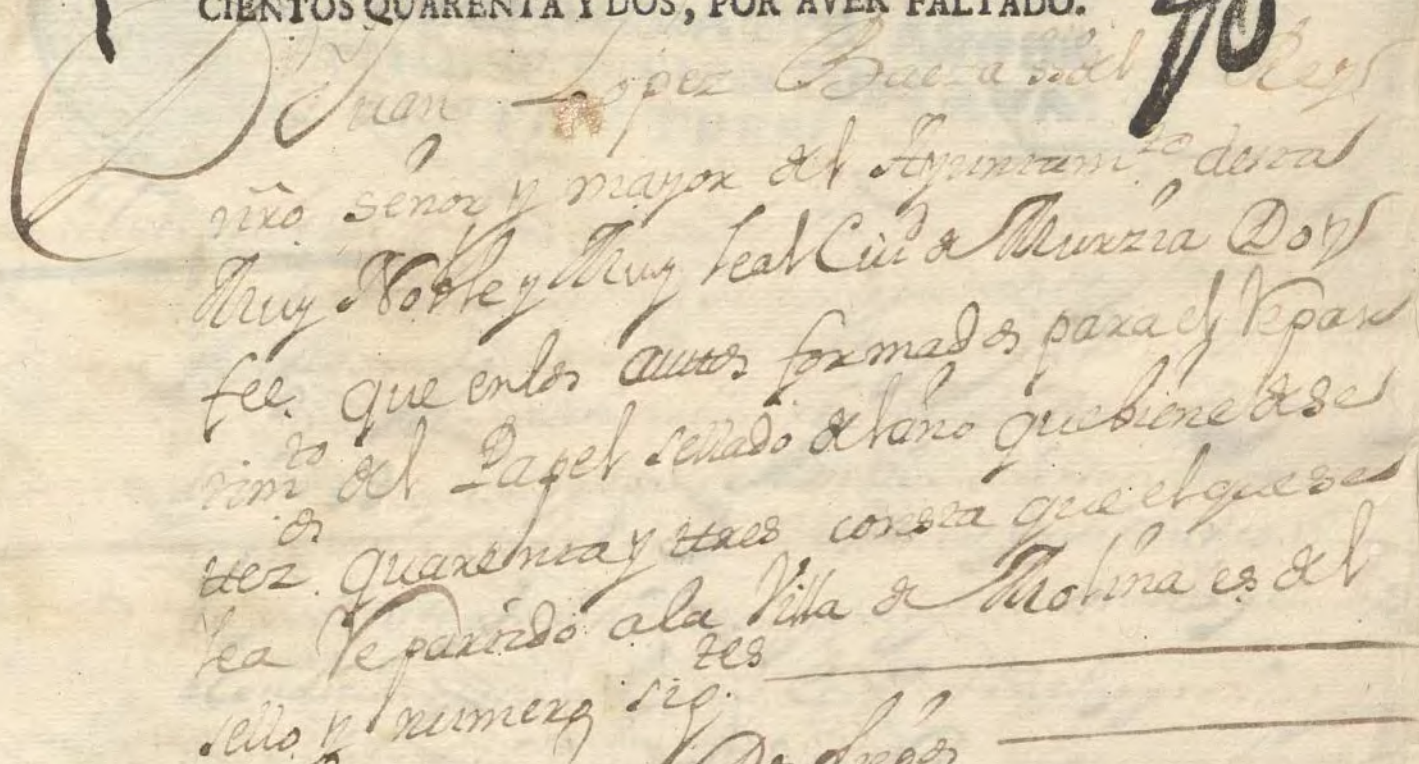 CIENTOS QUARENTA Y DOS, POR AVER FALTADO.
Juan Lopez Baeza ss.del Rey
nrō señor y mayor del Ayuntam.to desta
Muy Noble y Muy Leal Ciud de Murzia Doy
fee que en los autos formados para el Repar
tim.to del Papel sellado del año que biene de se
ttez.os quarenta y ttres consta que el que se
lea Repartido a la Villa de Molina es del
sello y numero sig.tes